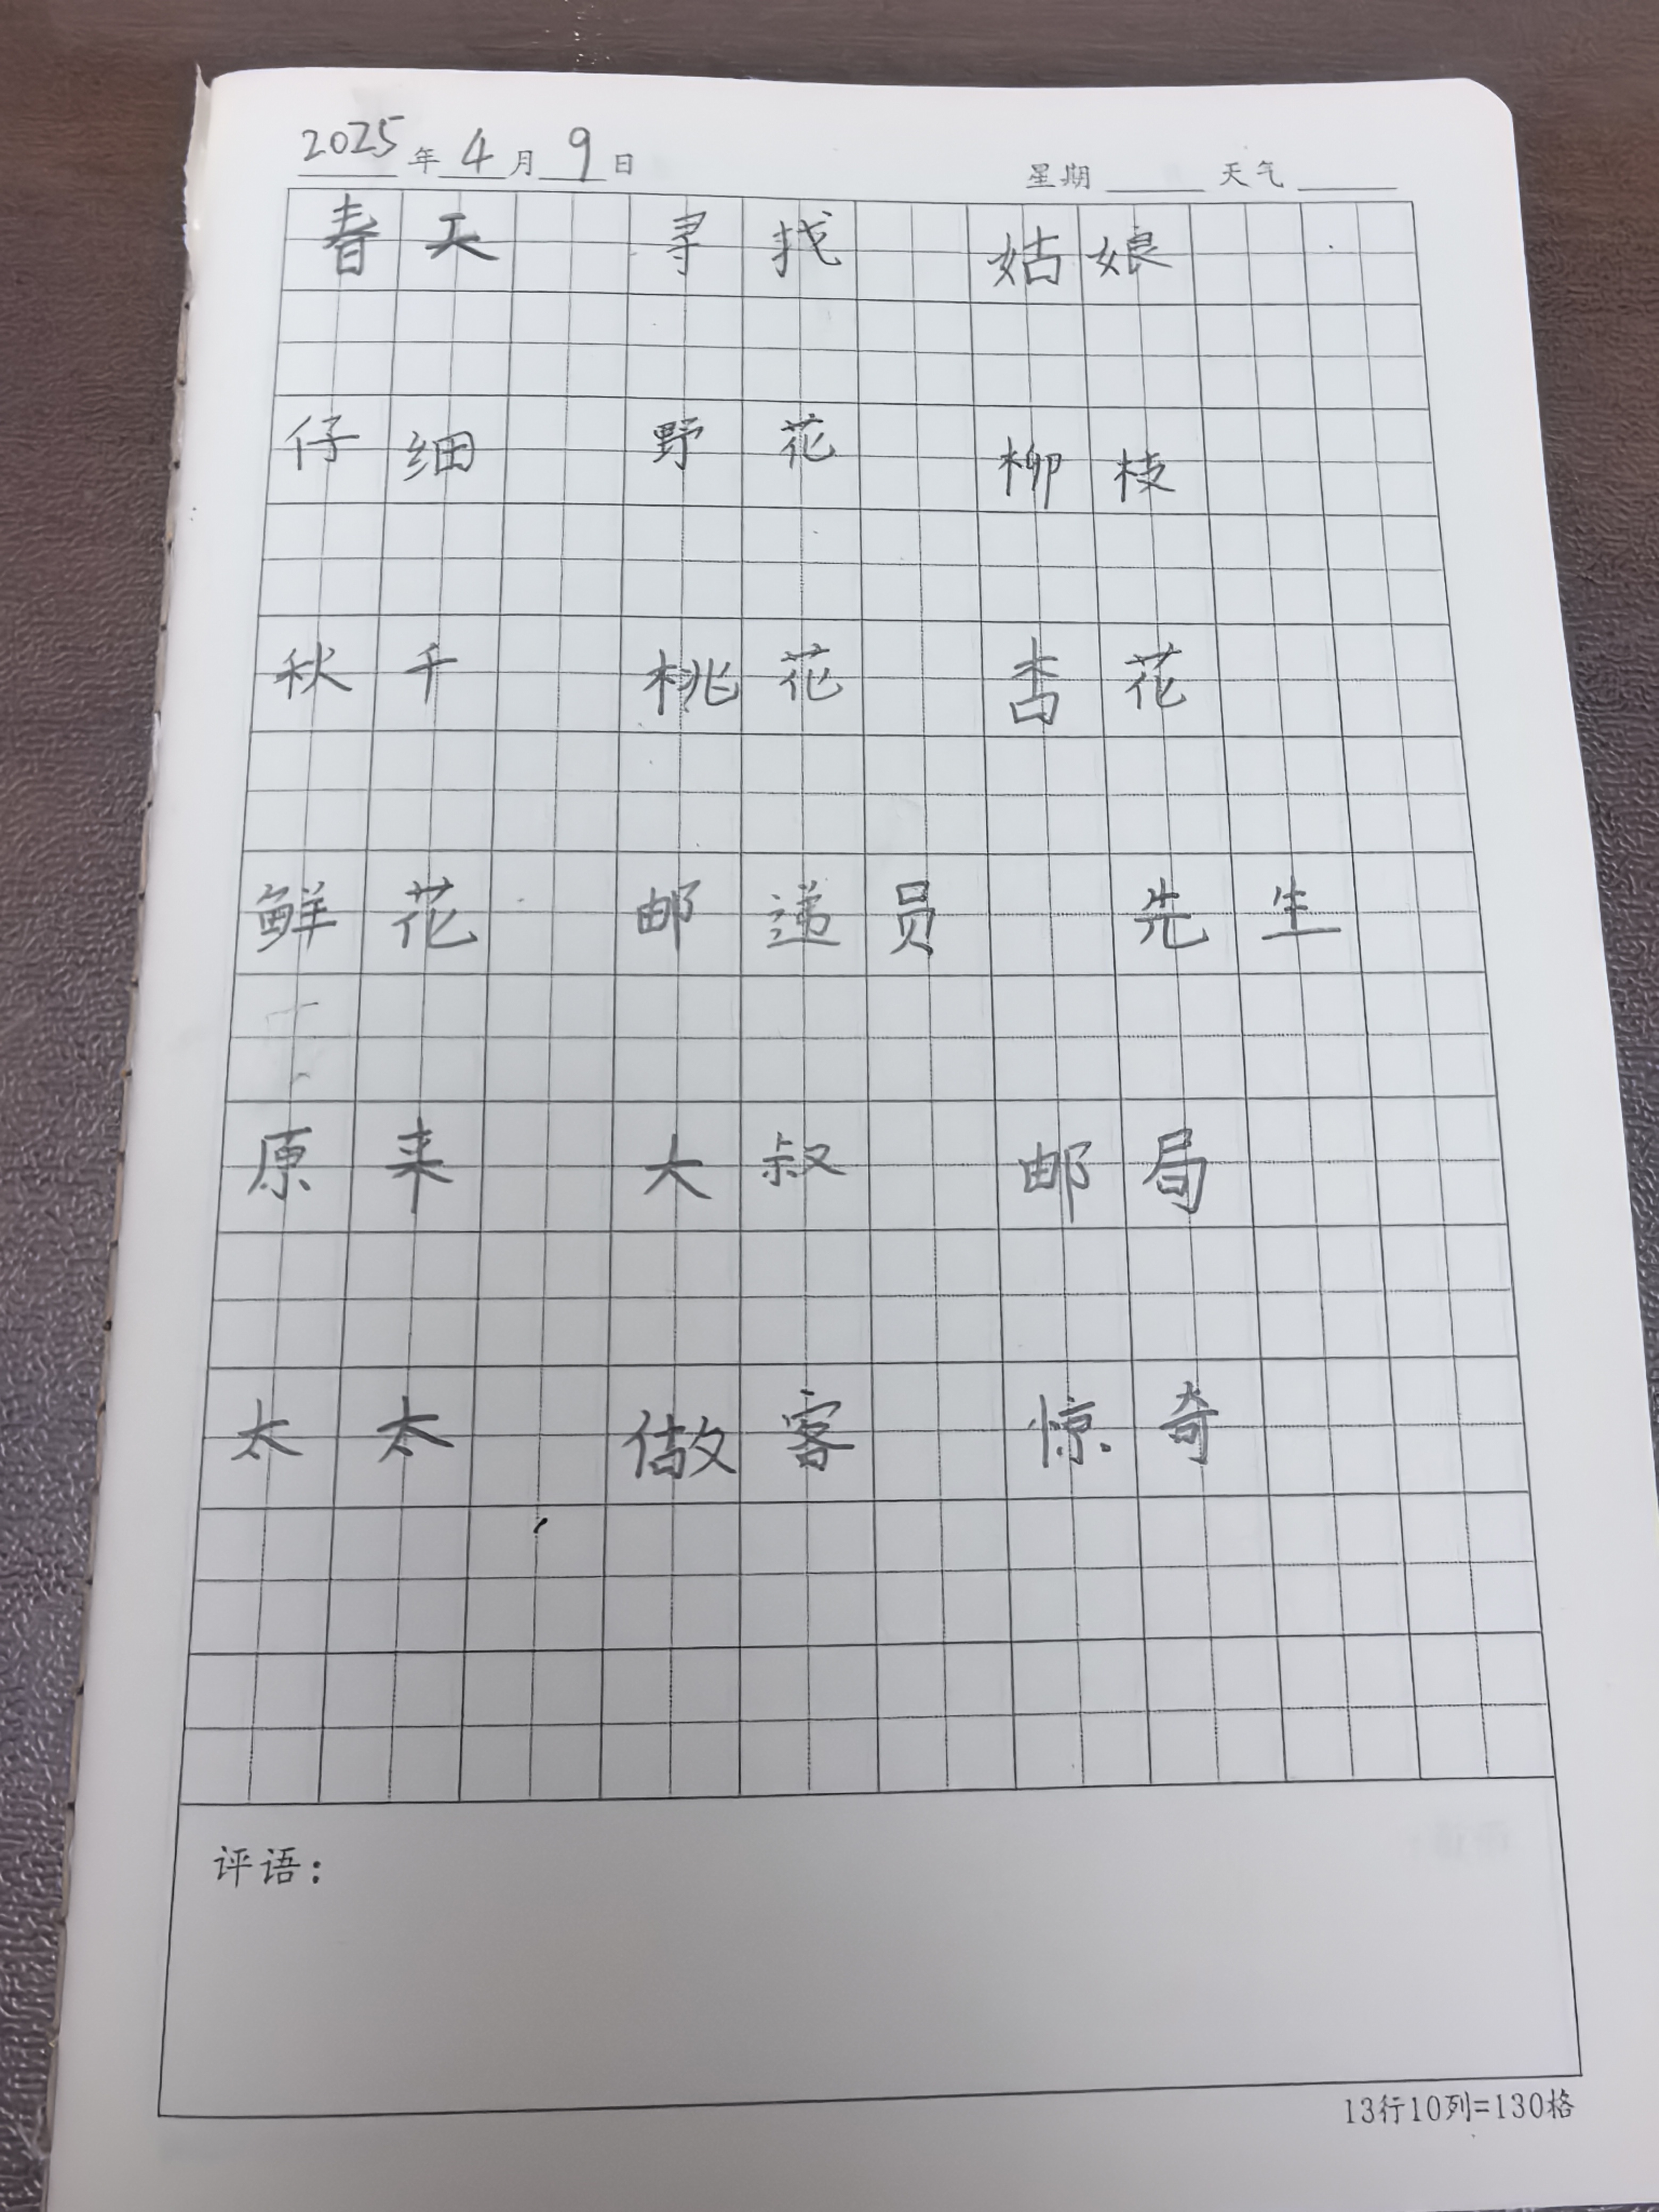 2025年4月9日 星期 天气
春天 寻找 姑娘
仔细 野花 柳枝
秋千 桃花 杏花
鲜花 邮递员 先生
原来 大叔 邮局
太太 做客 惊奇
评语：
13行10列=130格